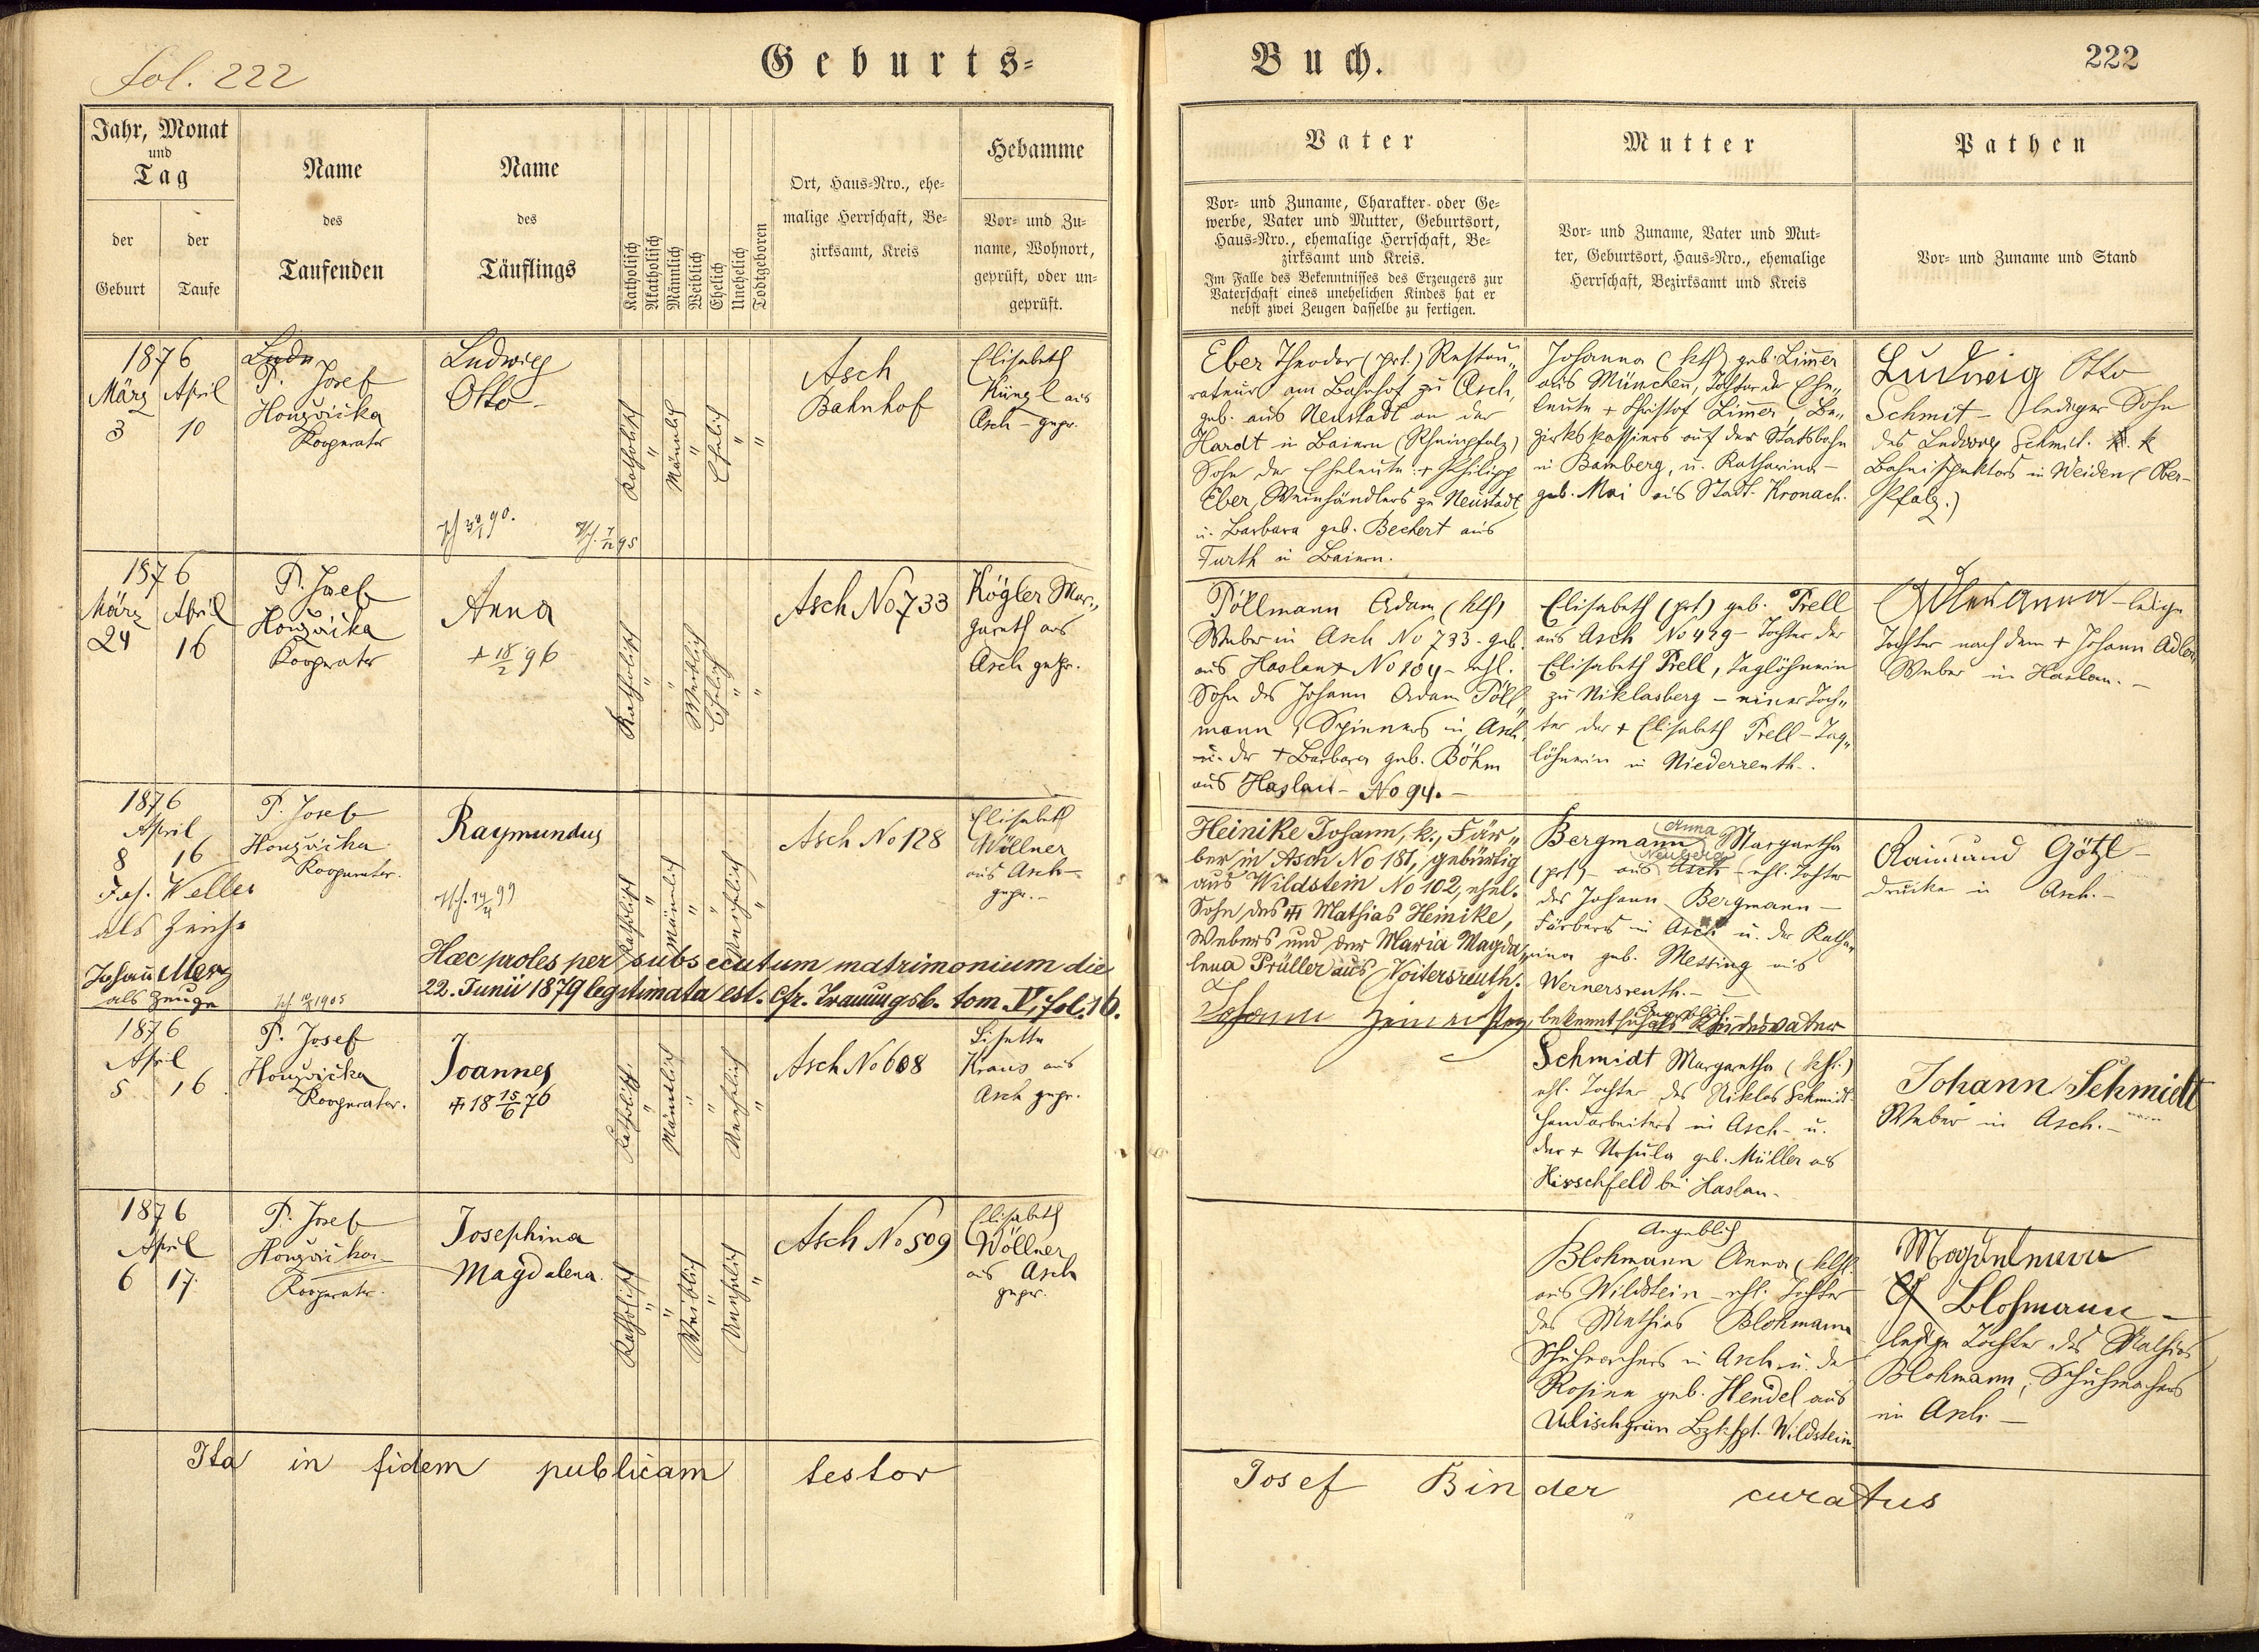 fol. 222
Geburts-
Jahr, Monat
und
Tag
der
Geburt
der
Taufe
Name
des
Taufenden
Name
des
Täuflings
Katholisch
Akatholisch
Männlich
Weiblich
Ehelich
Unehelich
Todtgeboren
Ort, Haus-Nro., ehe-
malige Herrschaft, Be-
zirksamt, Kreis
Hebamme
Vor- und Zu-
name, Wohnort,
geprüft, oder un-
geprüft.
1876
März April
3 10
P. Josef
Honzvička
Kooperator
Ludwig
Otto
Katholisch
Männlich
Ehelich
Asch
Bahnhof
Elisabeth
Küngl aus
Asch - gepr.
1876
März April
24 16
P. Josef
Honzvička
Kooperator
Anna
+ 18/2 96
Katholisch
Weiblich
Ehelich
Asch No 733
Kögler Mar„
gareth aus
Asch gepr.
1876
April
8 16
Joh. Weller
als Zeuge
Johann Merz
als Zeuge
P. Josef
Honzvička
Kooperator.
Raymundus
Katholisch
Männlich
Unehelich
Asch No 128
Elisabeth
Wöllner
aus Asch-
gepr.-
Hæc proles per subsecutum matrimonium die
22. Junii 1879 legitimata est. Cfr. Trauungsb. tom. V, fol. 16.
1876
April
5 16
P. Josef
Honzvička
Kooperator.
Joannes
18 15/6 76
Katholisch
Männlich
Unehelich
Asch No 608
Lisette
Kraus aus
Asch gepr.
1876
April
6 17.
P. Josef
Honzvička
Kooperator.
Josephina
Magdalena.
Katholisch
Weiblich
Unehelich
Asch No 509
Elisabeth
Wöllner
aus Asch
gepr.
Ita in fidem publicam testor
Buch.
222
Vater
Vor- und Zuname, Charakter oder Ge-
werbe, Vater und Mutter, Geburtsort,
Haus-Nro., ehemalige Herrschaft, Be-
zirksamt und Kreis.
Im Falle des Bekenntnisses des Erzeugers zur
Vaterschaft eines unehelichen Kindes hat er
nebst zwei Zeugen dasselbe zu fertigen.
Mutter
Vor- und Zuname, Vater und Mut-
ter, Geburtsort, Haus-Nro., ehemalige
Herrschaft, Bezirksamt und Kreis
Pathen
Vor- und Zuname und Stand
Eber Theodor (prt.) Restau„
rateur am Bahnhof zu Asch,
geb. aus Neustadt an der
Hardt in Baiern (Rheinpfalz)
Sohn der Eheleute: + Philipp
Eber, Weinhändlers zu Neustadt,
u. Barbara geb. Bechert aus
Furth in Baiern.
Johanna (kth) geb. Limer
aus München, Tochter der Ehe„
leute + Christof Limer, Be„
zirkskassiers auf der Statsbahn
in Bamberg, u. Katharina -
geb. Mai aus Stadt Kronach.
Ludwig Otto
Schmit - lediger Sohn
des Ludwig Schmit. k. k
Bahnispektors in Weiden (Ober-
Pfalz.)
Pöllmann Adam (kth)
Weber in Asch No 733 - geb.
aus Haslau No 104 - ehl.
Sohn des Johann Adam Pöll„
mann, Spinners in Asch,
u. der + Barbara geb. Böhm
aus Haslau - No 94. -
Elisabeth (prt) geb. Prell
aus Asch No 429 - Tochter der
Elisabeth Prell, Taglöhnerin
zu Niklasberg - einer Toch„
ter der + Elisabeth Prell - Tag„
löhnerin in Niederreuth.
Adler Anna - ledige
Tochter nach dem + Johann Adler
Weber in Haslau. -
Heinike Johann, k., Fär„
ber in Asch No 181, gebürtig
aus Wildstein No 102, ehel.
Sohn des Mathias Heinike,
Webers und der Maria Magda„
lena Prüller aus Voitersreuth.
Johann bekennt sich als Kindesvater
Bergmann Anna Margaretha
(prt) - aus Asch Neuberg - ehl. Tochter
des Johann Bergmann -
Färbers in Asch u. der Katha„
rina geb. Messing aus
Wernersreuth. -
Raimund Götzl -
Drucker in Asch. -
Angeblich
Schmidt Margaretha (kth.)
ehl. Tochter des Niklas Schmidt
Handarbeiters in Asch - u.
der + Ursula geb. Müller aus
Hirschfeld bei Haslau.
Johann Schmidt
Weber in Asch. -
Angeblich
Blohmann Anna (kth.
aus Wildstein - ehl. Tochter
des Mathias Blohmann
Schuhmachers in Asch u. der
Rosina geb. Hendel aus
Ulischgrün Wildstein.
Magdalena
Blohmann -
ledige Tochter des Mathias
Blohmann, Schuhmachers
in Asch. -
Josef Binder curatus